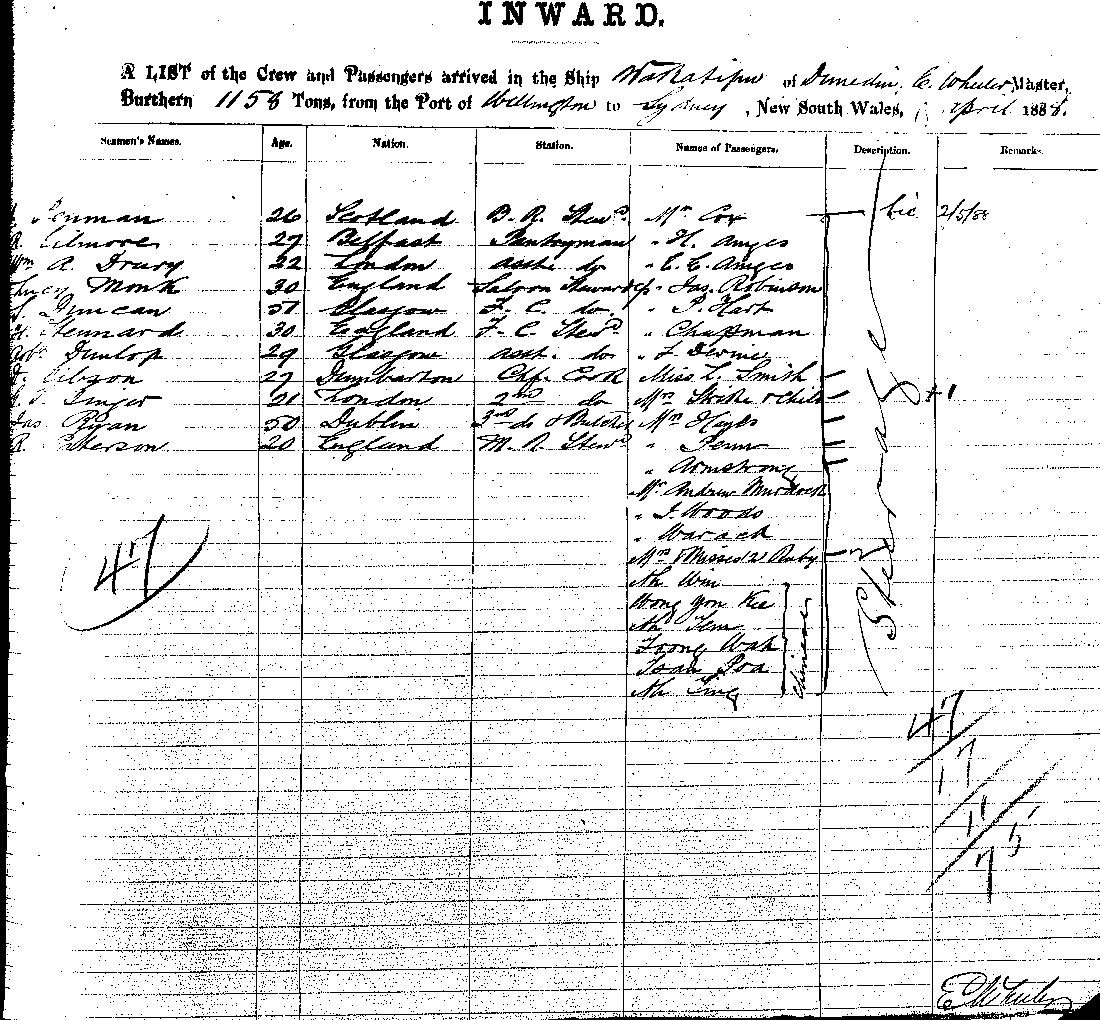 INWARD.
A LIST of the Crew and Passengers arrived in the Ship Wakatipu of Dunedin, C. Wheeler Master,
Burthern 1158 Tons, from the Port of Wellington to Sydney, New South Wales, April 1888.
Seamen's Names. Age. Nation. Station. Names of Passengers. Description. Remarks.
Penman 26 Scotland B. R. Stewd. Mr Cox 2/5/88
Gilmore 27 Belfast Pantryman " H. Amges
Wm A. Drury 22 London asst. do " E. E. Amges
Monk 30 England Saloon Steward Jas. Robinson
Duncan 51 Glasgow F. C. do. " P. Hart
Stennard 30 England F. C. Stewd. " Chapman
Robt Dunlop 29 Glasgow asst. do " Devine
Gibson 27 Dumbarton Chf. Cook Miss L. Smith
Singer 21 London 2nd do Mrs & Child +1
Jas Ryan 50 Dublin 3rd do & Butcher Mrs Hayes
R. Paterson 20 England M. R. Stewd. " Penn
" Armstrong
Mr Andrew Murdoch
" J. Woods
" Warack
Mrs & Misses 2 Ruby
Ah Wm
Wong Yon Kee
Ah Tem
Foong Wah
Tsan Poa
Ah Ting
Chinese
Steerage
47
47
17
11
75
C. Wheeler